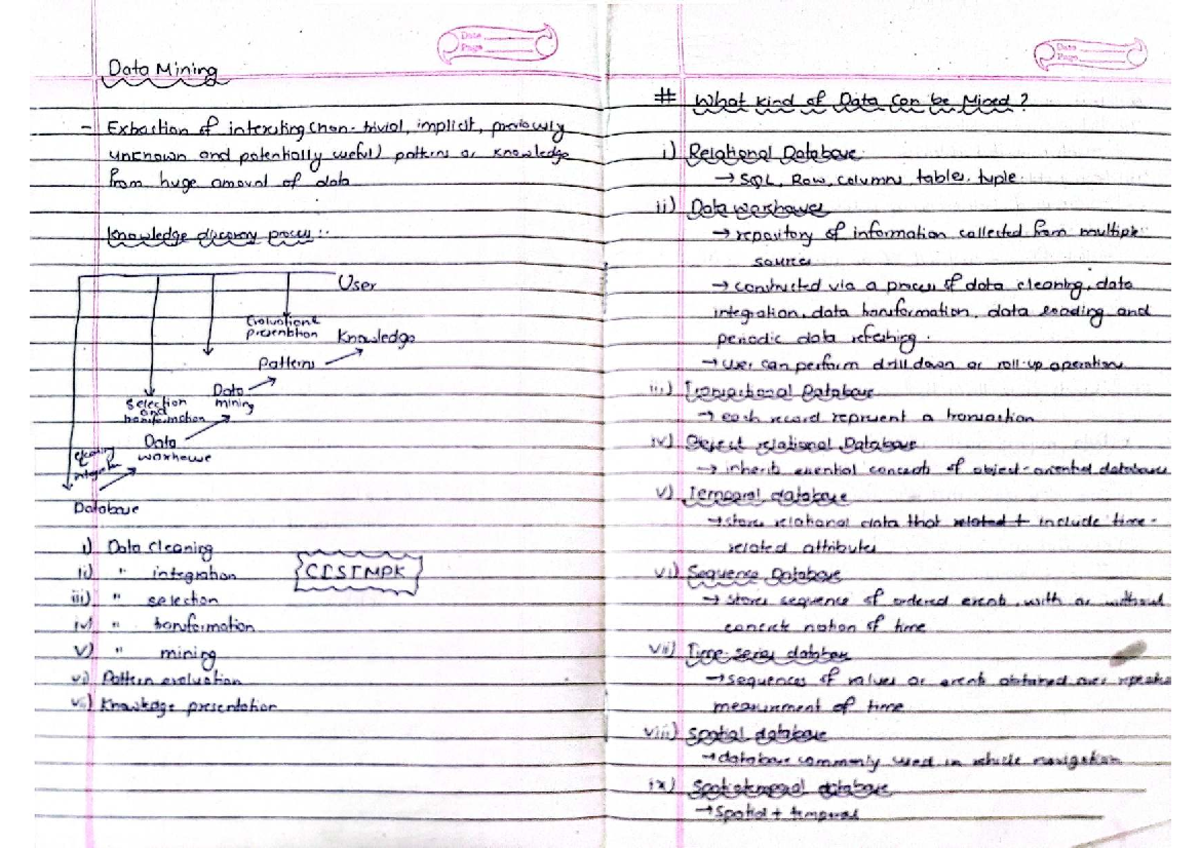 Date
Page
Data Mining
- Extraction of interesting (non-trivial, implicit, previously
unknown and potentially useful) pattern or knowledge
from huge amount of data
Knowledge discovery process:-
User
Evaluation &
presentation
Knowledge
Patterns
Data
mining
Selection
and
transformation
Data
warehouse
Cleaning
&
integration
Database
i) Data cleaning
ii) " integration
CISTMPK
iii) " selection
iv) " transformation
v) " mining
vi) Pattern evaluation
vii) Knowledge presentation
Date
Page
# What kind of Data Can be Mined?
i) Relational Database
→ SQL, Row, columns, tables, tuple.
ii) Data warehouses
→ repository of information collected from multiple
source
→ constructed via a process of data cleaning, data
integration, data transformation, data loading and
periodic data refreshing.
→ user can perform drill down or roll-up operation
iii) Transactional Database
→ each record represent a transaction
iv) Object relational Database
→ inherits essential concepts of object-oriented database
v) Temporal database
→ stores relational data that related t include time-
related attributes
vi) Sequence Database
→ stores sequence of ordered events, with or without
concrete notion of time
vii) Time-series database
→ sequences of values or events obtained over repeated
measurement of time
viii) Spatial database
→ database commonly used in vehicle navigation
ix) Spatiotemporal database
→ Spatial + temporal